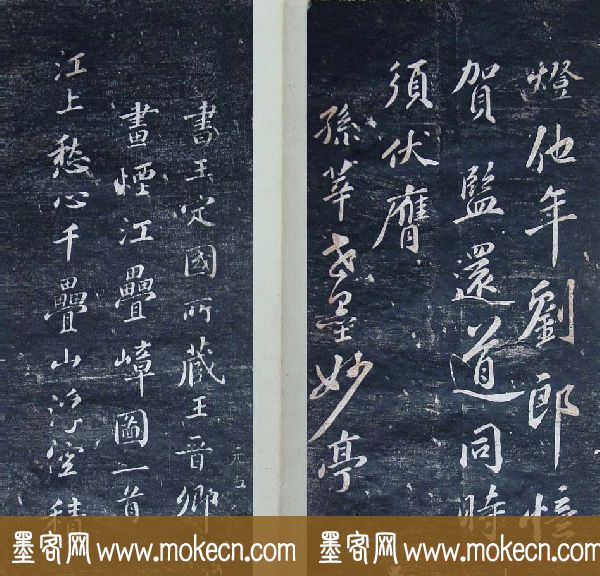 燈他年劉郎憶
賀監還道同時
須伏膺
孫莘老墨妙亭
書王定國所藏王晉卿
畫煙江疊嶂圖一首
江上愁心千疊山浮空積
墨客网 www.mokecn.com
墨客网 www.mokecn.com